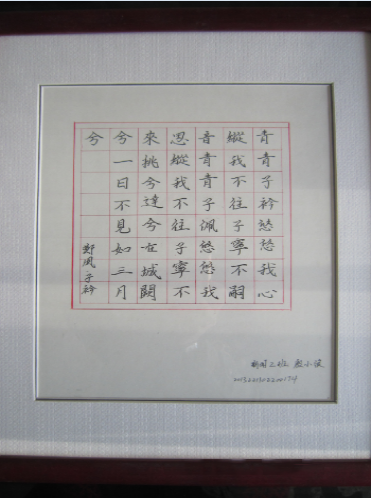 青青子衿悠悠我心
縱我不往子寧不嗣
音青青子佩悠悠我
思縱我不往子寧不
來挑兮達兮在城闕
兮一日不見如三月
兮
鄭風子衿